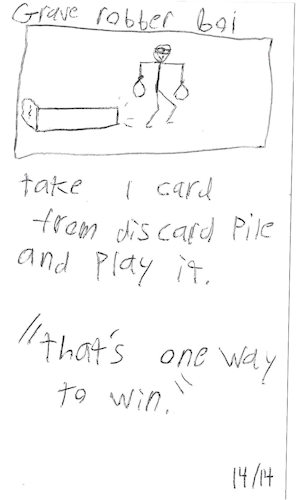 Grave robber boi
take 1 card
from discard Pile
and Play it.
"that's one way
to win."
14/14